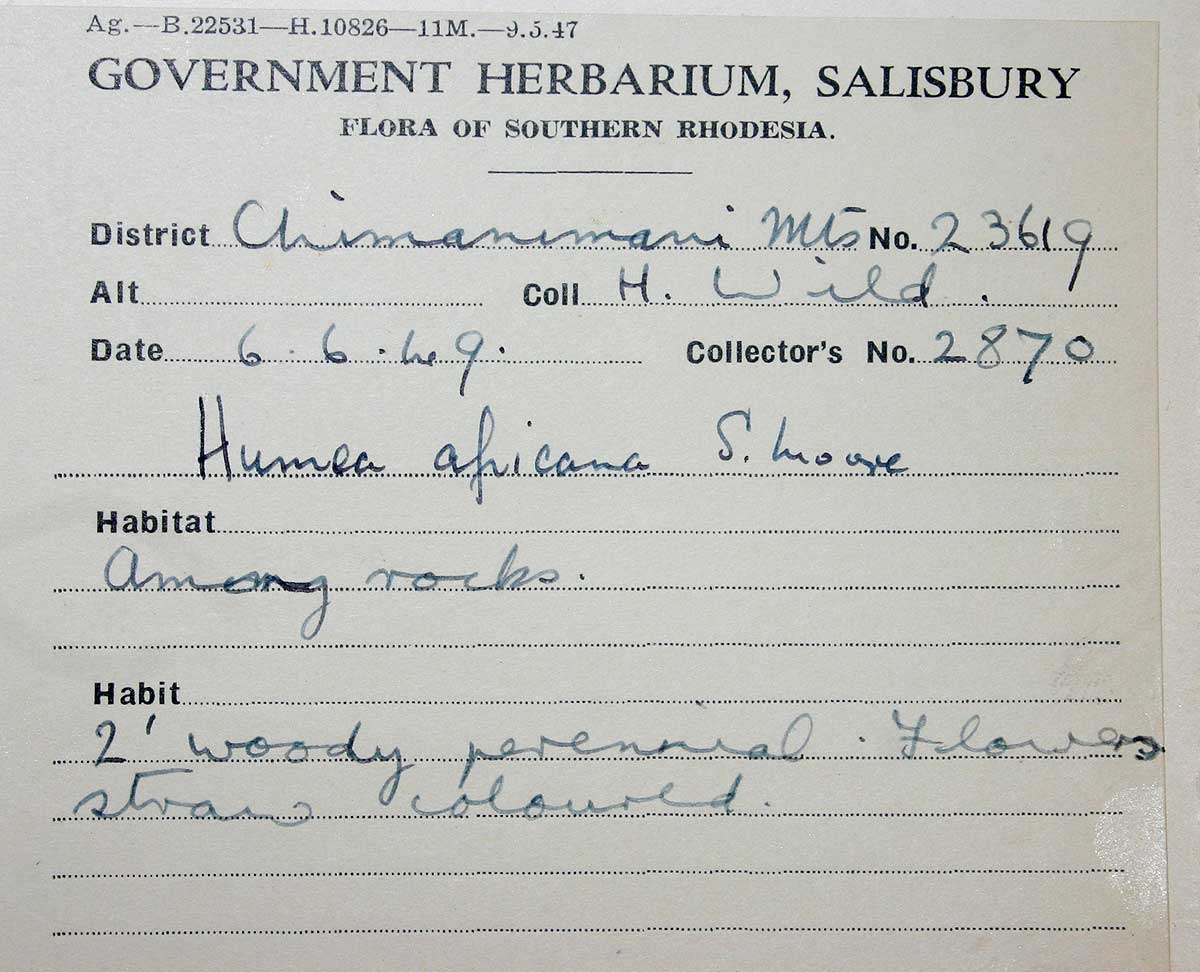 Ag.—B.22531—H.10826—11M.—9.5.47
GOVERNMENT HERBARIUM, SALISBURY
FLORA OF SOUTHERN RHODESIA.
District Chimanimani Mts No. 23619
Alt Coll H. Wild.
Date 6.6.49. Collector's No. 2870
Humea africana S. Moore
Habitat
Among rocks.
Habit
2' woody perennial. Flowers
straw coloured.